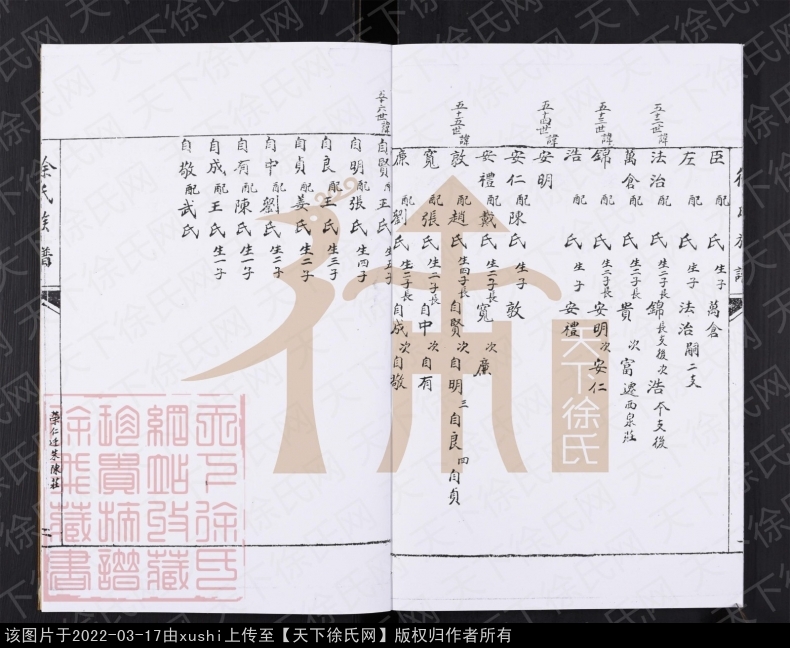 臣 配 氏 生子 萬倉
左 配 氏 生子 法治 嗣二支
五十二世諱
法治 配 氏 生二子長 錦 長支後 次 浩
萬倉 配 氏 生二子長 貴 次 富 遷西泉莊
五十三世諱
錦 配 氏 生二子長 安明 次 安仁
浩 配 氏 生子 安禮
五十四世諱
安明
安仁 配陳氏 生子 敦
安禮 配戴氏 生二子長 寬 次 廉
五十五世諱
敦 配趙氏 生四子長 自賢 次 自明 三 自良 四 自貞
寬 配張氏 生二子長 自中 次 自有
廉 配劉氏 生二子長 自成 次 自敬
五十六世諱
自賢 配王氏 生五子
自明 配張氏 生四子
自良 配王氏 生三子
自貞 配姜氏 生二子
自中 配劉氏 生二子
自有 配陳氏 生一子
自成 配王氏 生一子
自敬 配武氏
徐氏族譜
榮仁迁朱陳莊
天下徐氏
天下徐氏網站收藏珍貴
徐氏藏書
天下徐氏网
该图片于2022-03-17由xushi上传至【天下徐氏网】版权归作者所有